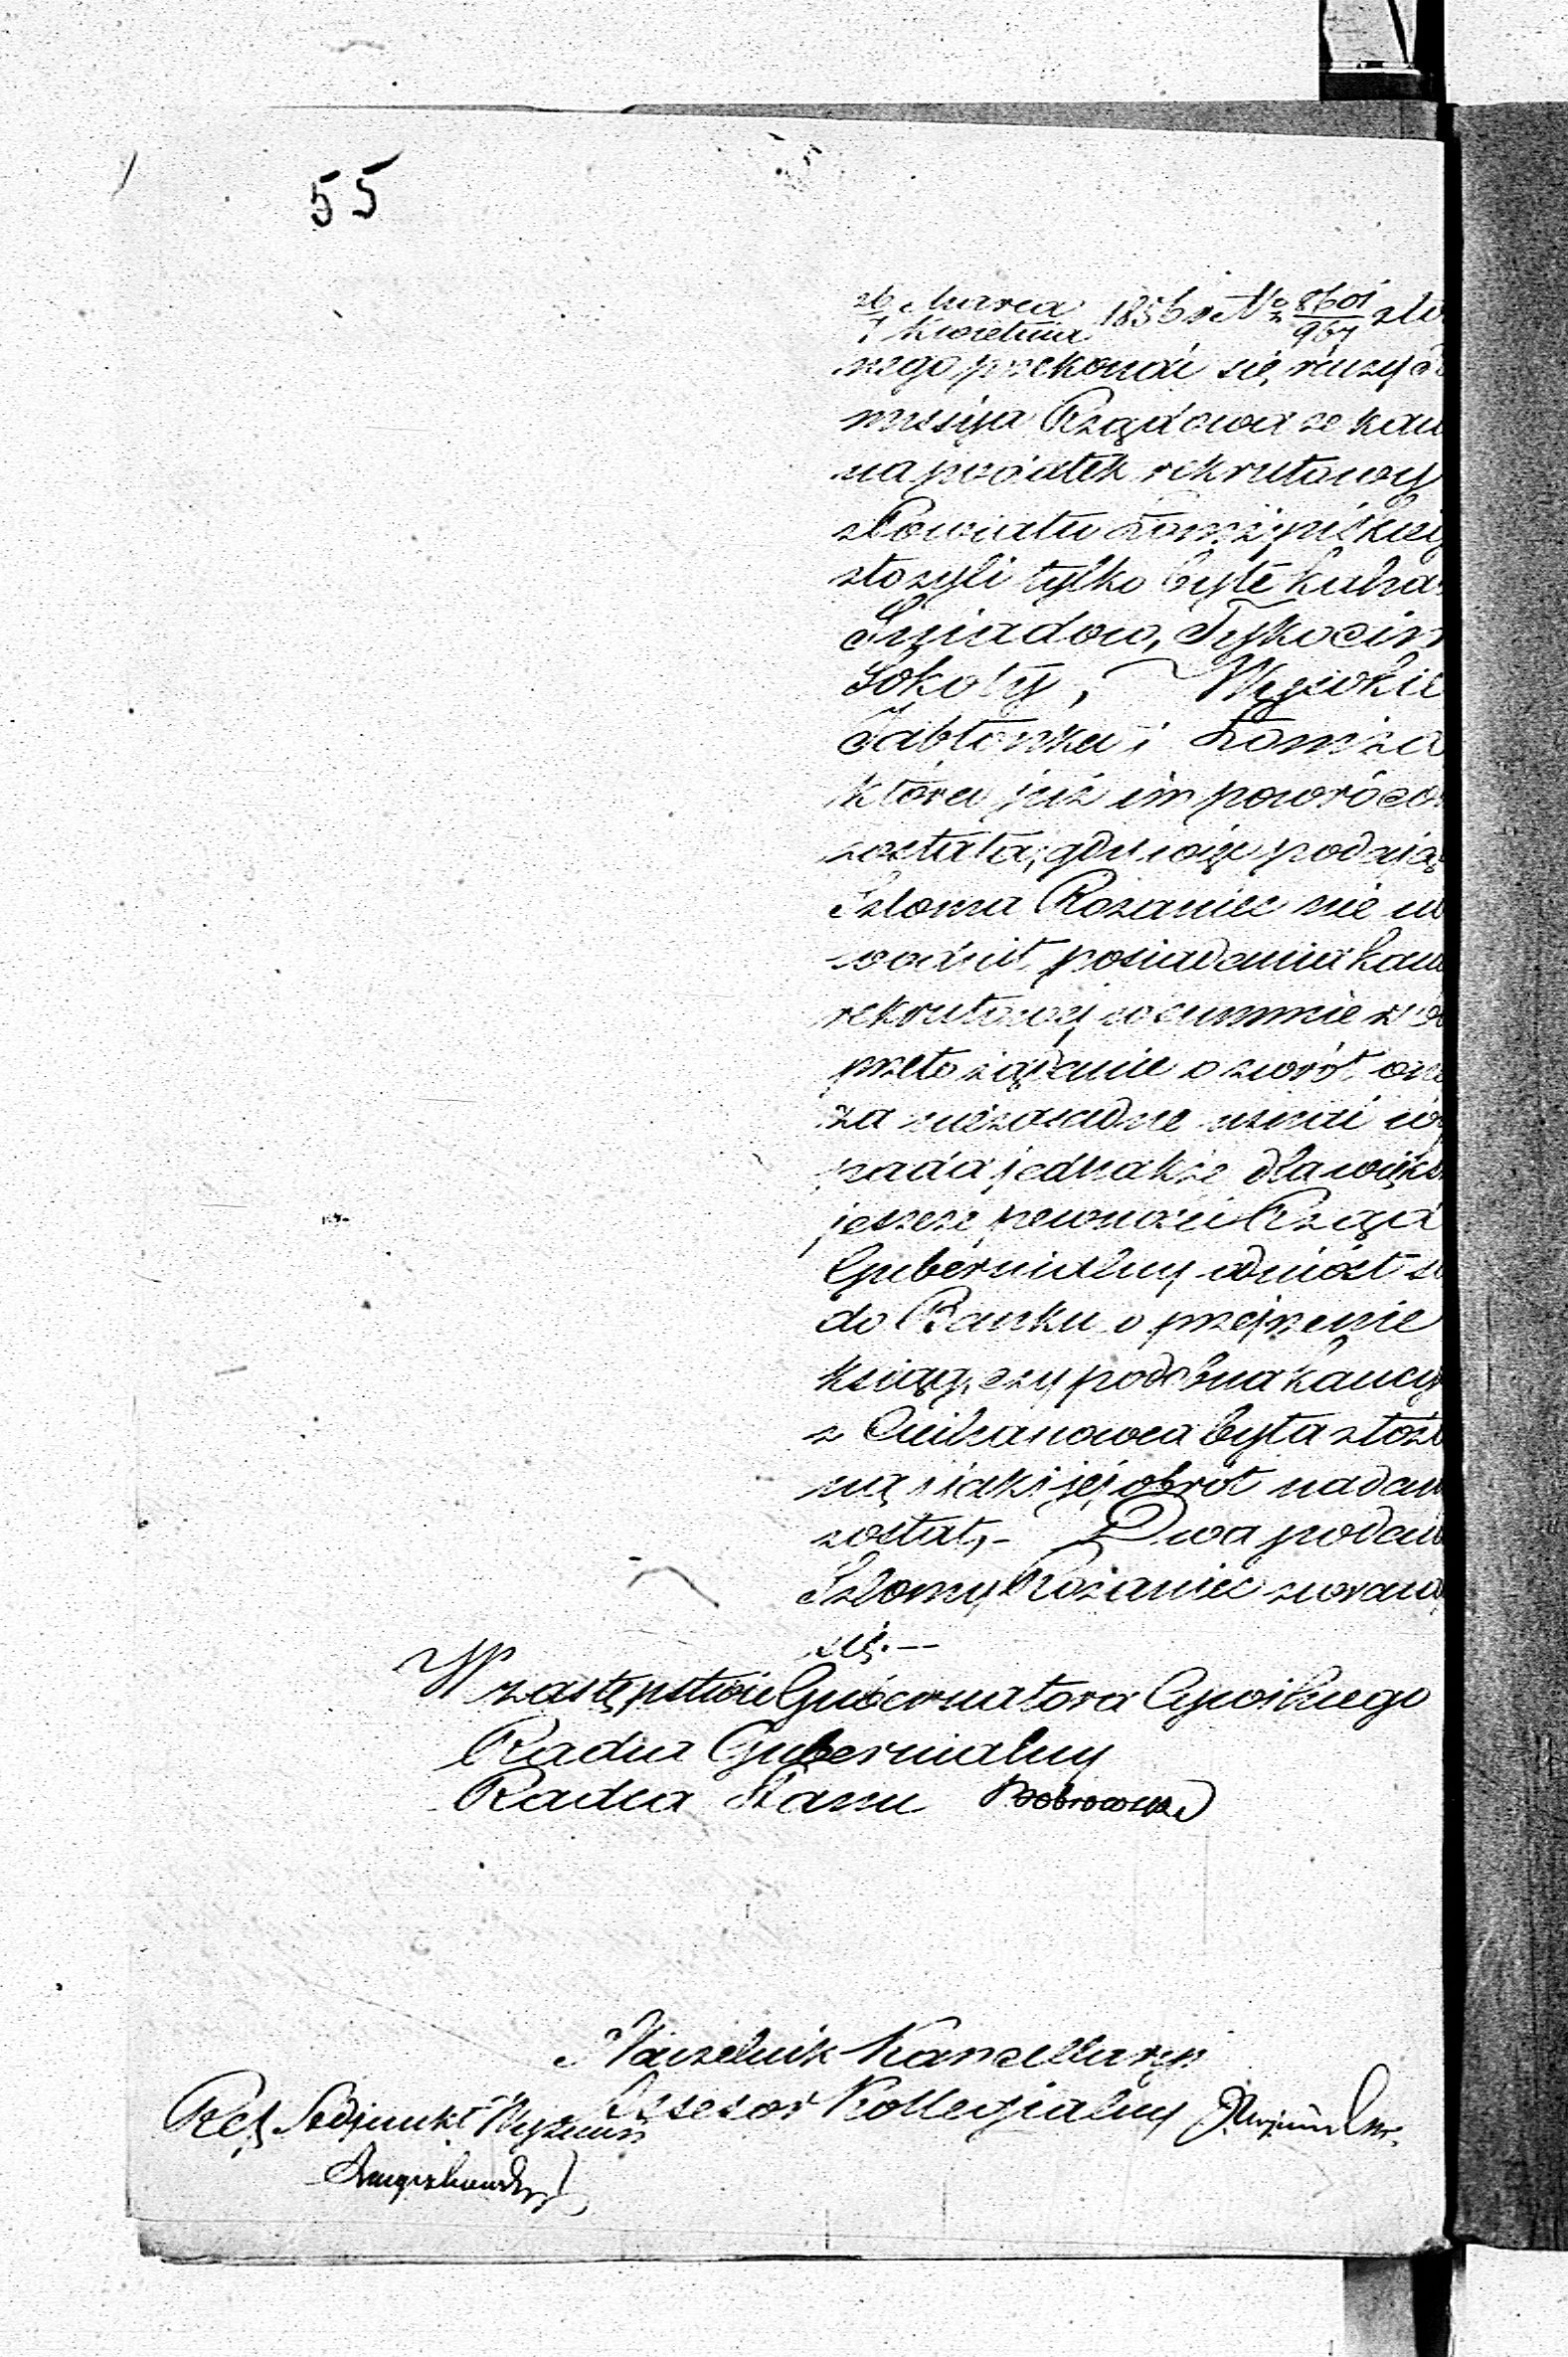 55
26 Marca / 7 Kwietnia 1856 r. No 8601/967 zło
nego przekonać się raczy Ko
missya Rządowa że kau
na podatek rekrutowy
z Powiatu Łomżyńskieg
złożyli tylko byłe kaha
Śniadow, Tykocin
Sokoły, Wysokie
Jabłonka i Łomża
która już im powróco
została, gdy więc podają
Szloma Rozaniec nie u
wodnił posiadania kau
rekrutowej w summie
przeto żądanie o zwrot one
za niezasadne uznać wy
pada jednakże dla więks
jeszcze pewności Rząd
Gubernialny odniósł si
do Banku o przejrzenie
ksiąg, czy podobna kaucy
z Ciechanowca była złożo
ną i jaki jej obrót nadan
został,- Dwa podan
Szlomy Rozaniec zwraca
się.—
W zastępstwie Gubernatora Cywilnego
Radca Gubernialny
Radca Stanu
Naczelnik Kancellaryi
Assesor Kollegialny
Ref. Adjunkt